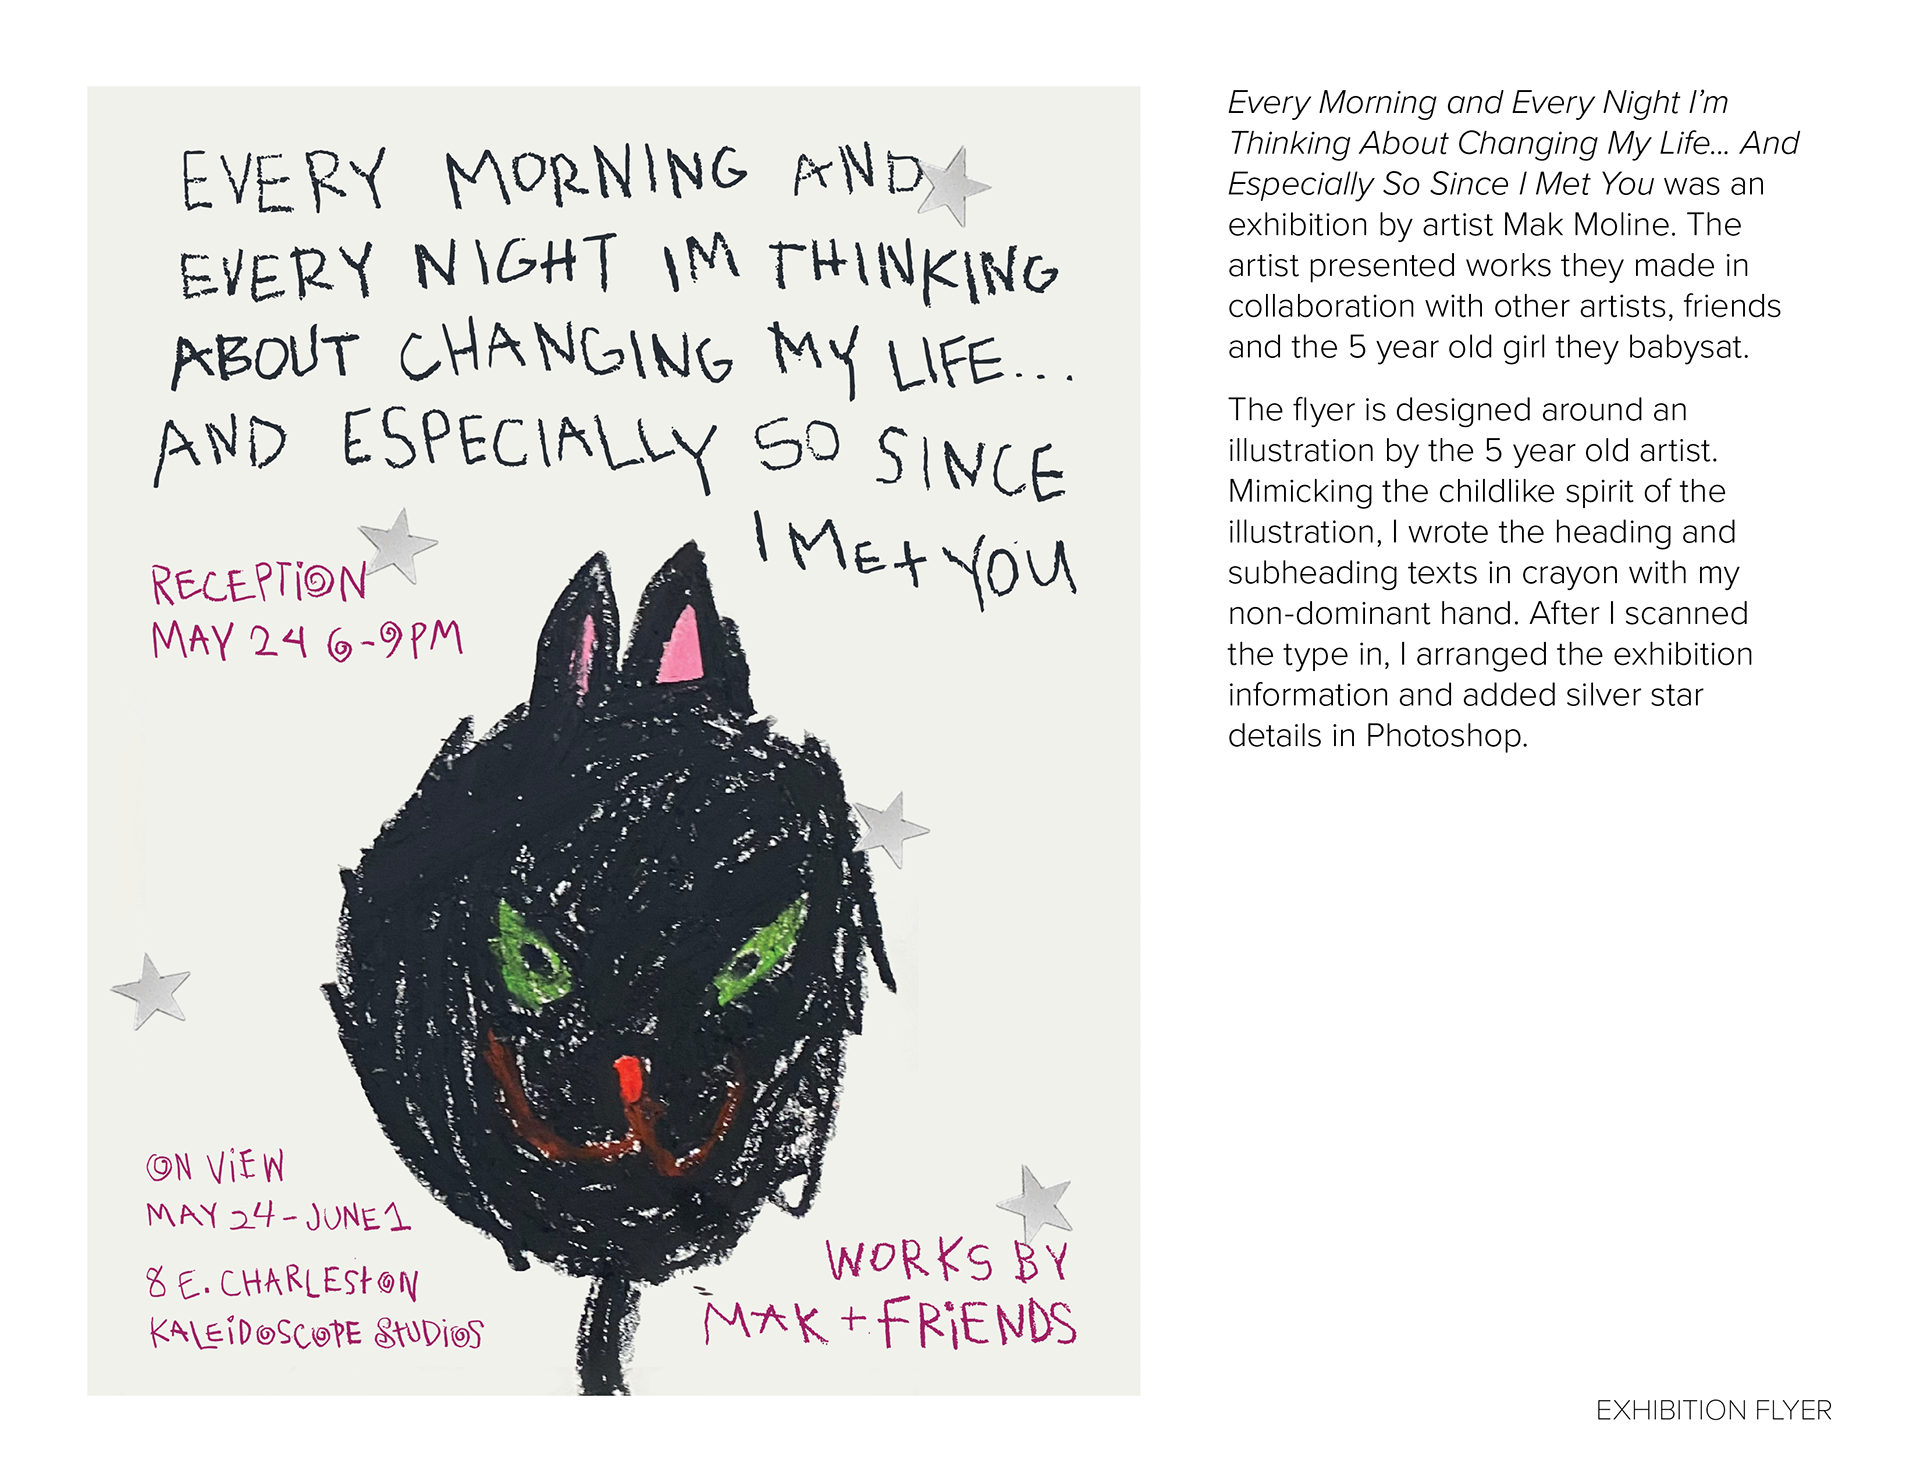 EVERY MORNING AND
EVERY NIGHT IM THINKING
ABOUT CHANGING MY LIFE...
AND ESPECIALLY SO SINCE
I MEt YOU
RECEPTiON
MAY 24 6-9PM
ON ViEW
MAY 24-JUNE 1
8 E. CHARLEStON
KALEiDOSCOPE StUDiOS
WORKS BY
MAK + FRiENDS
Every Morning and Every Night I’m
Thinking About Changing My Life... And
Especially So Since I Met You was an
exhibition by artist Mak Moline. The
artist presented works they made in
collaboration with other artists, friends
and the 5 year old girl they babysat.
The flyer is designed around an
illustration by the 5 year old artist.
Mimicking the childlike spirit of the
illustration, I wrote the heading and
subheading texts in crayon with my
non-dominant hand. After I scanned
the type in, I arranged the exhibition
information and added silver star
details in Photoshop.
EXHIBITION FLYER